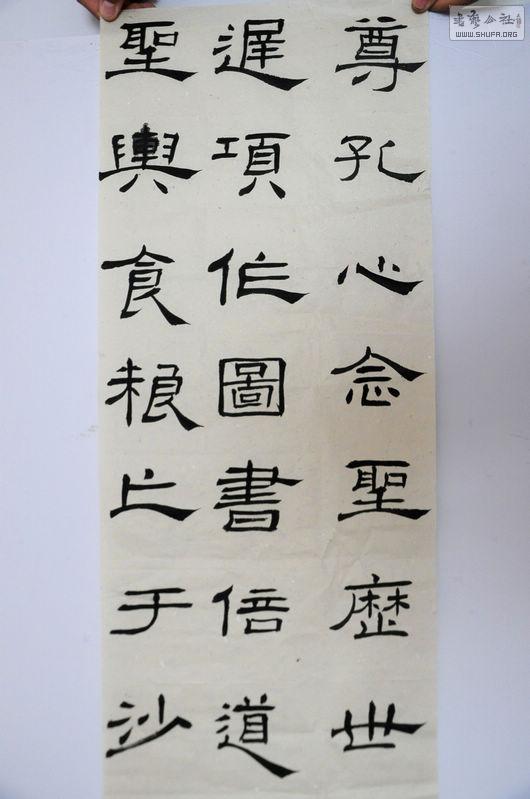 書藝公社
WWW.SHUFA.ORG
尊孔心念聖歷世
遲項作圖書倍道
聖輿食粮亡于沙